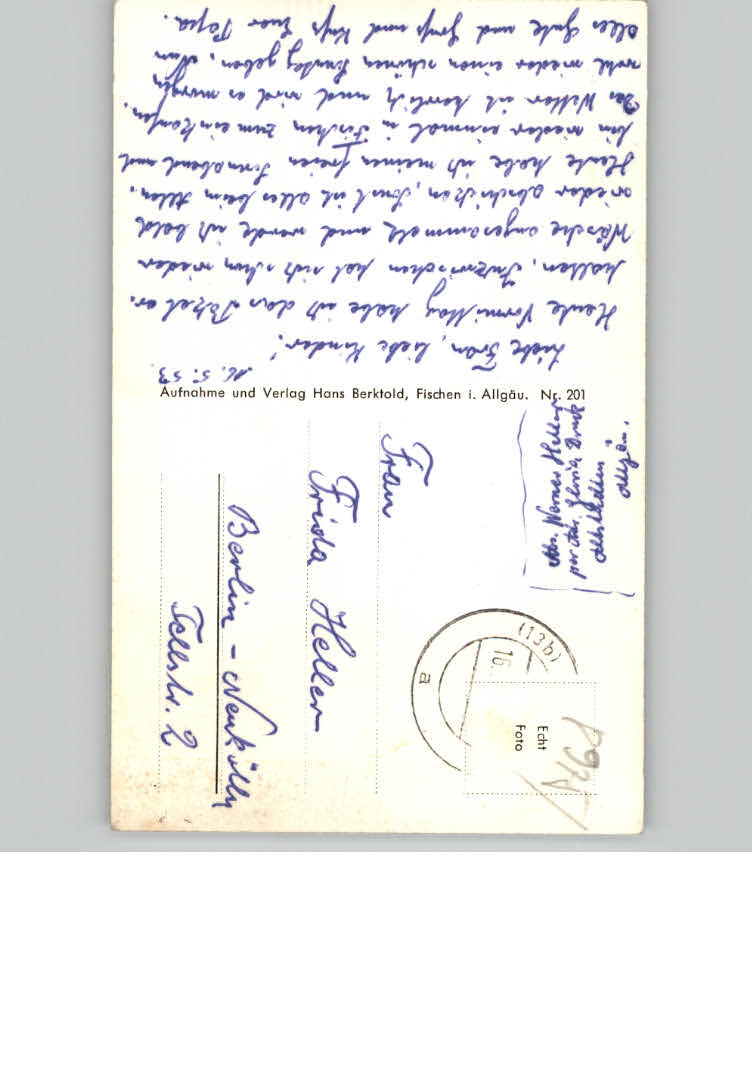 16. 5. 53.
Liebe Frau, liebe Kinder!
Heute Vormittag habe ich das Paket er-
halten. Inzwischen hat sich schon wieder
Wäsche angesammelt und werde ich bald
wieder abschicken, sonst ist alles beim Alten.
Heute habe ich meinen freien Sonnabend und
bin wieder einmal in Fischen zum einkaufen.
Das Wetter ist herrlich und wird es morgen
wohl wieder einen schönen Sonntag geben. Nun
alles Gute und Gruß und Kuß Euer Papa.
Aufnahme und Verlag Hans Berktold, Fischen i. Allgäu. Nr. 201
Abs. Werner Heller
Allgäu.
Echt
Foto
(13b)
16.
a
Frau
Frida Heller
Berlin - Neukölln
Tellstr. 2